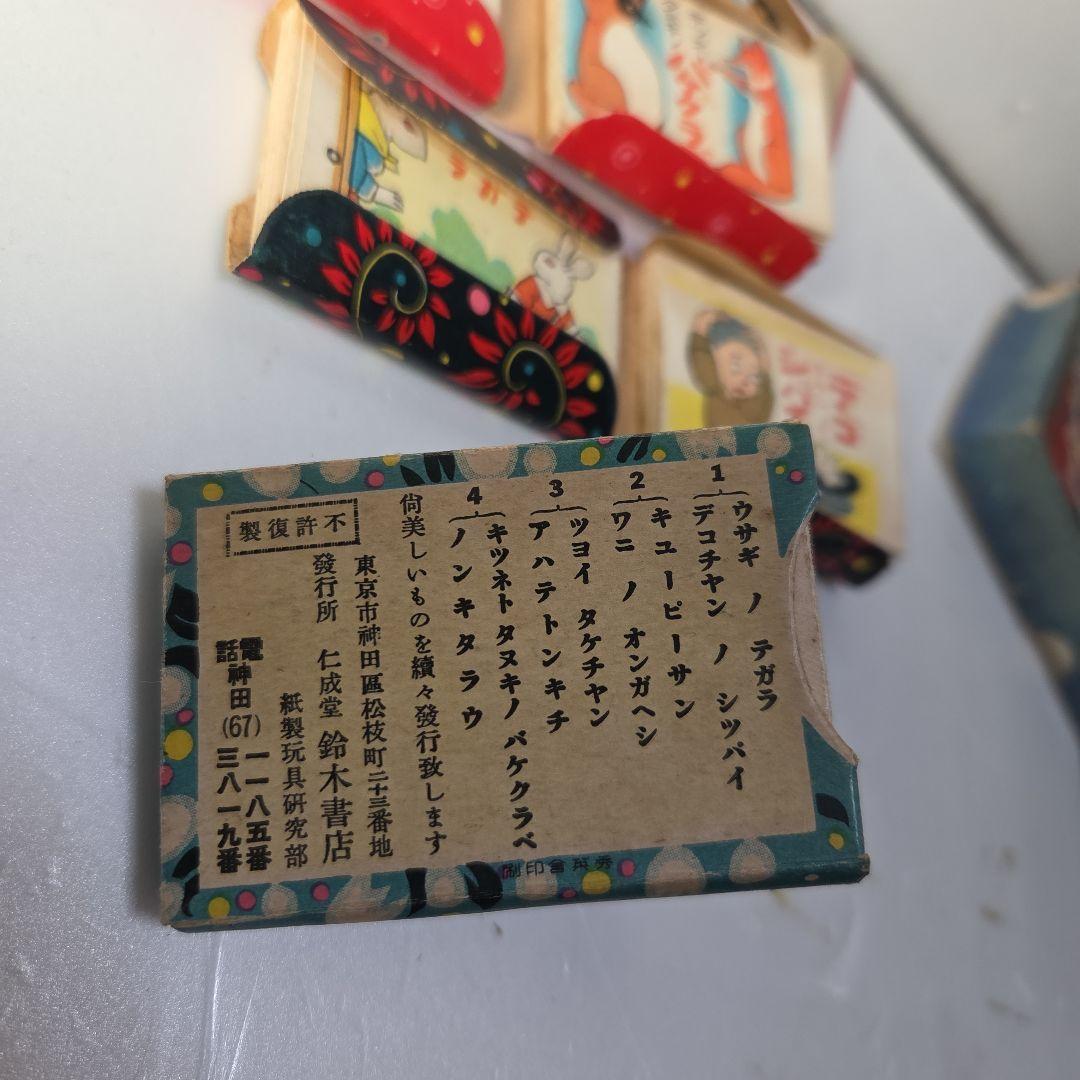 1
ウサギ ノ テガラ
デコチヤン ノ シツパイ
2
キユーピーサン
ワニ ノ オンガヘシ
3
ツヨイ タケチヤン
アハテトンキチ
4
キツネトタヌキノ バケクラベ
ノンキタラウ
尙美しいものを續々發行致します
東京市神田區松枝町二十三番地
發行所 仁成堂 鈴木書店
紙製玩具硏究部
電話神田(67)一一八五番
三八一九番
不許復製
秀英舍印刷